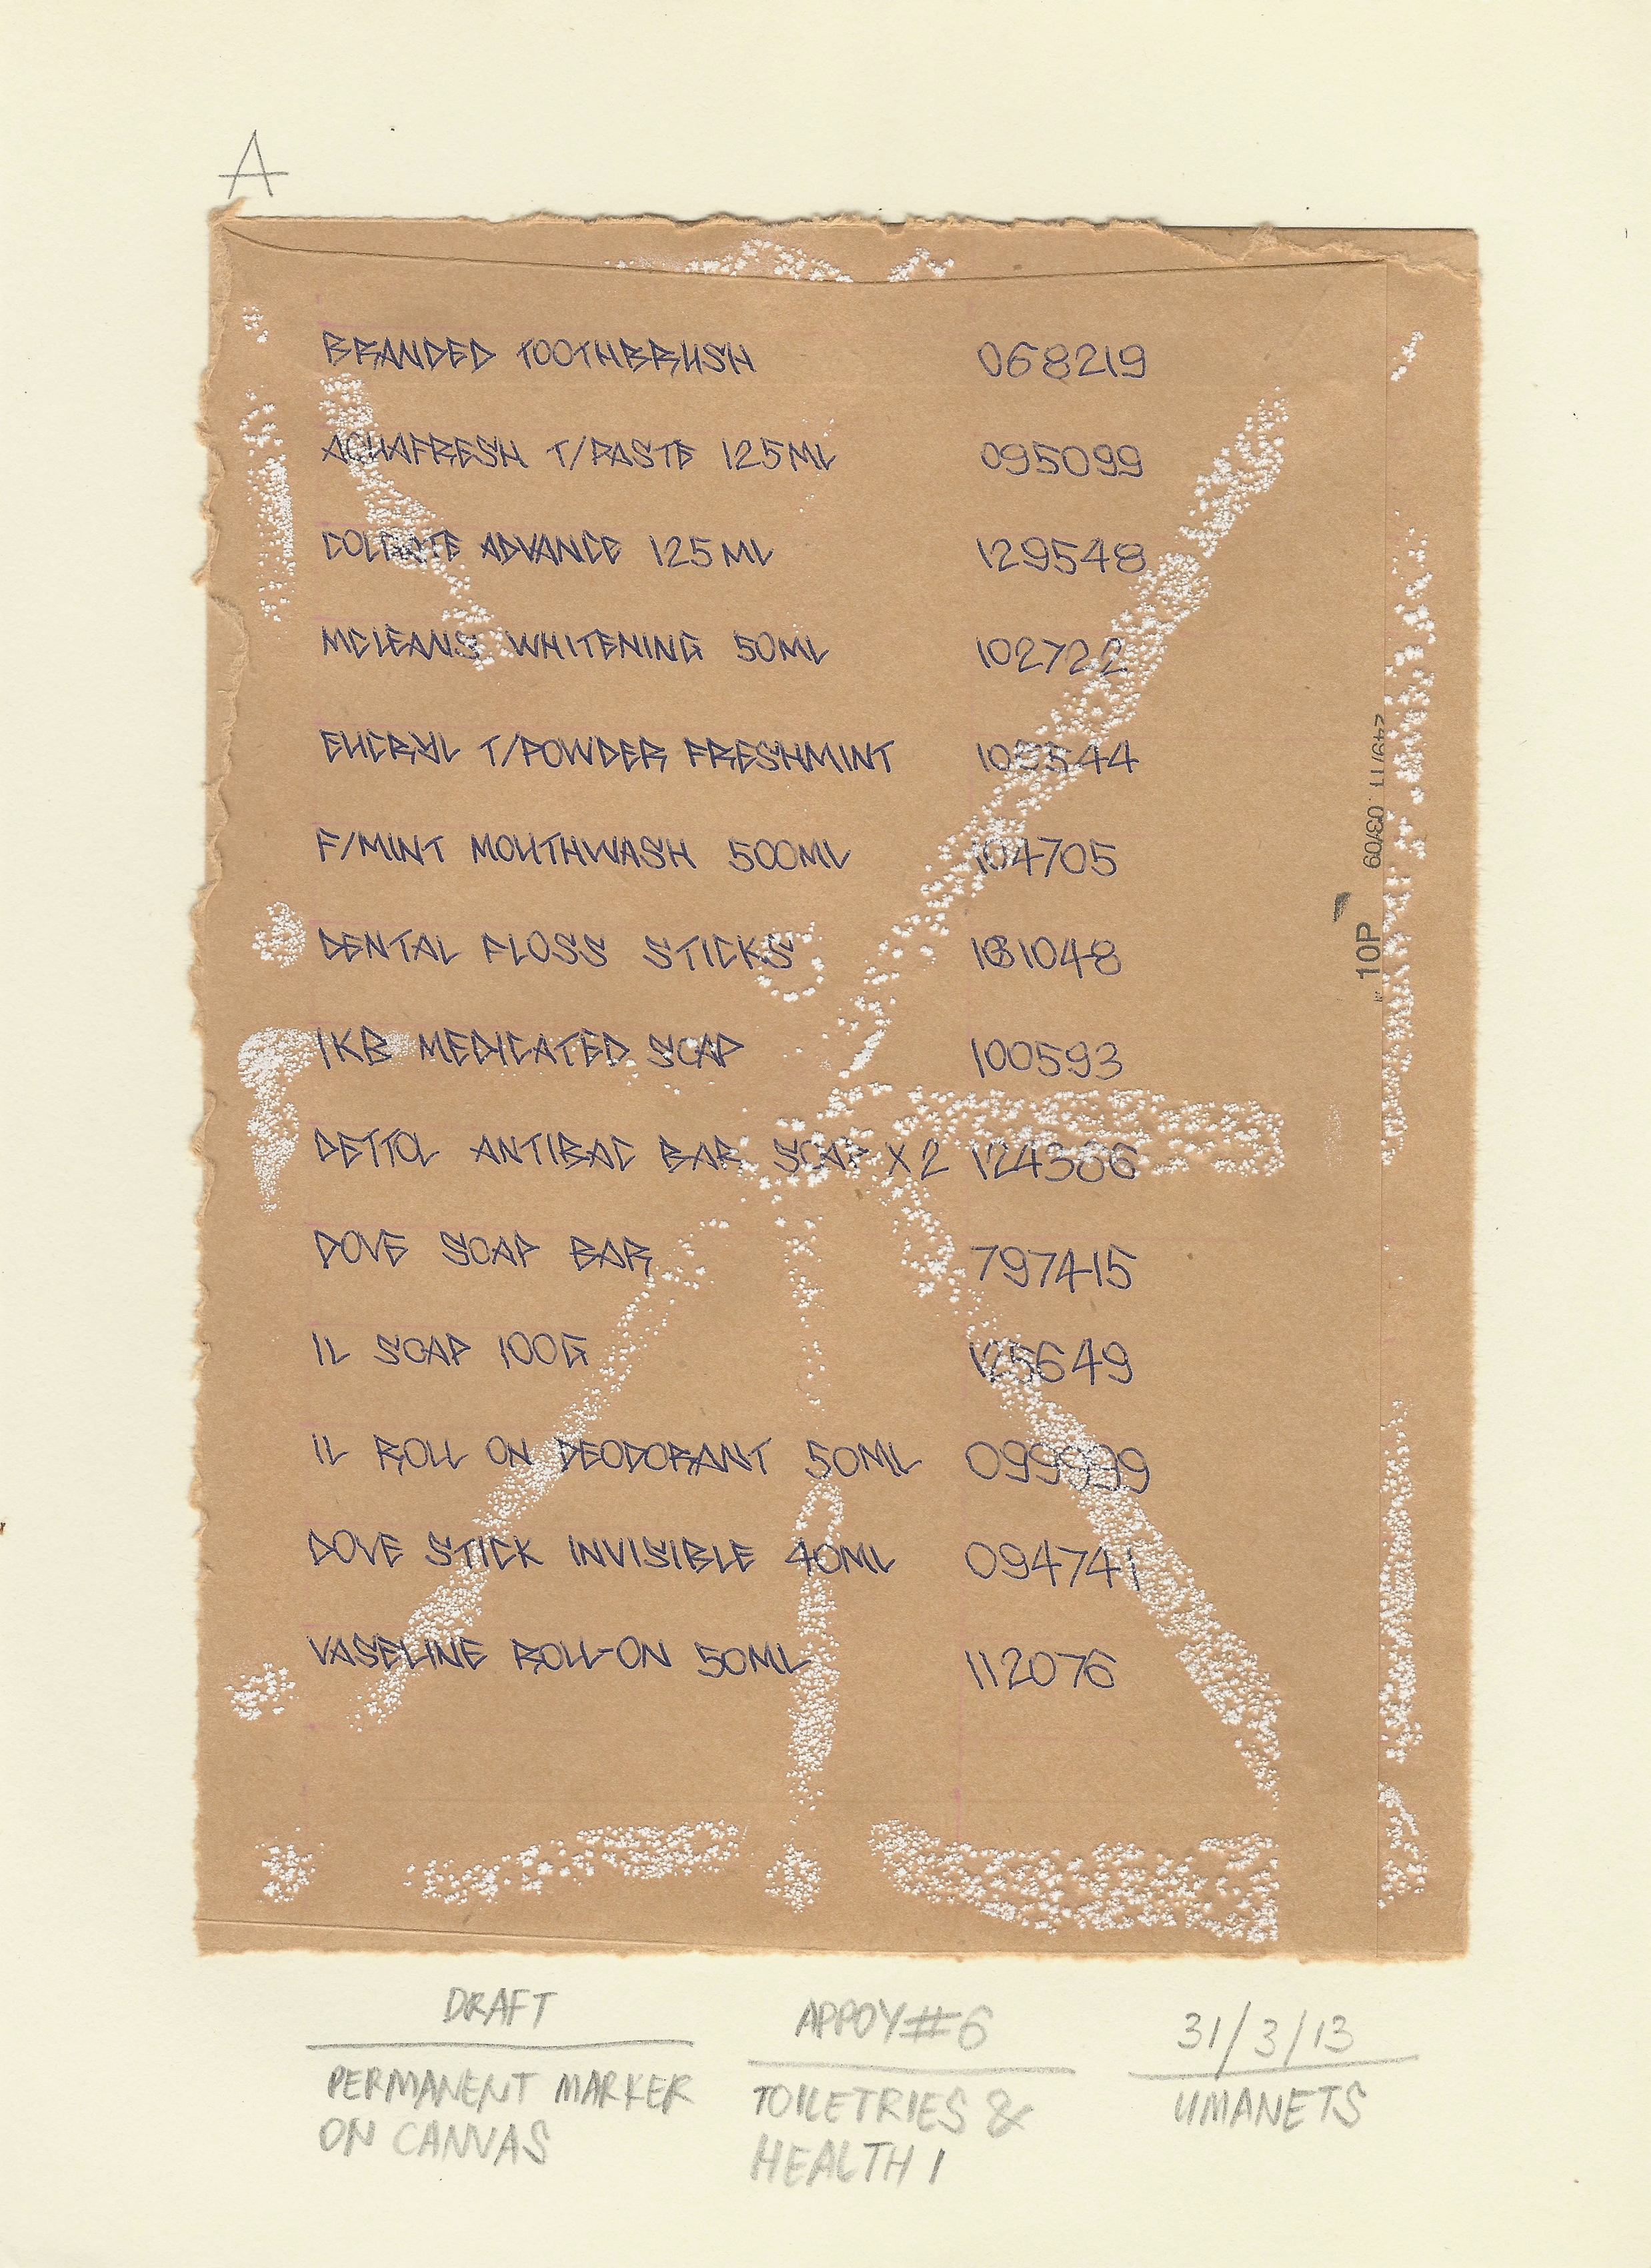 A
BRANDED TOOTHBRUSH 068219
AQUAFRESH T/PASTE 125ML 095099
COLGATE ADVANCE 125ML 129548
MCLEANS WHITENING 50ML 102722
EUCRYL T/POWDER FRESHMINT
F/MINT MOUTHWASH 500ML 104705
DENTAL FLOSS STICKS
IKB MEDICATED SOAP 100593
DETTOL ANTIBAC BAR SOAP X2 124386
DOVE SOAP BAR 797415
IL SOAP 100G 125649
IL ROLL ON DEODORANT 50ML 099999
DOVE STICK INVISIBLE 40ML 094741
VASELINE ROLL-ON 50ML 112076
10P 03/09
DRAFT
PERMANENT MARKER
ON CANVAS
APPOY#6
TOILETRIES &
HEALTH 1
31/3/13
UMANETS